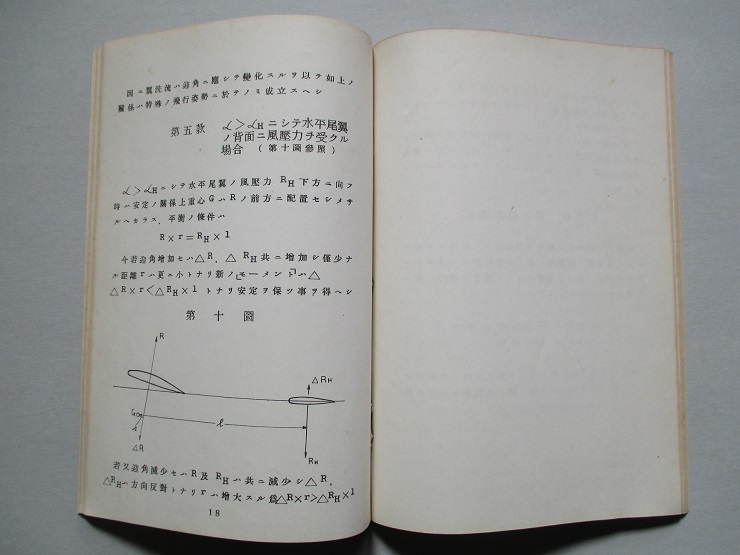 因ニ翼洗流ハ迎角ニ應シテ變化スルヲ以テ如上ノ
關係ハ特殊ノ飛行姿勢ニ於テノミ成立スヘシ
第五款 α>αHニシテ水平尾翼
ノ背面ニ風壓力ヲ受クル
場合 (第十圖參照)
α>αHニシテ水平尾翼ノ風壓力 RH 下方ニ向フ
時ハ安定ノ關係上重心GハRノ前方ニ配置セシメサ
ルヘカラス、平衡ノ條件ハ
R×r=RH×l
今若迎角增加セハ△R、△RH共ニ增加シ僅少ナ
ル距離rハ更ニ小トナリ新ノ「モーメント」ハ△
△R×r<△RH×l トナリ安定ヲ保ツ事ヲ得ヘシ
第十圖
R
△RH
G
r
l
△R
RH
若又迎角減少セハR及RHハ共ニ減少シ△R、
△RHハ方向反對トナリrハ增大スル爲△R×r>△RH×l
18